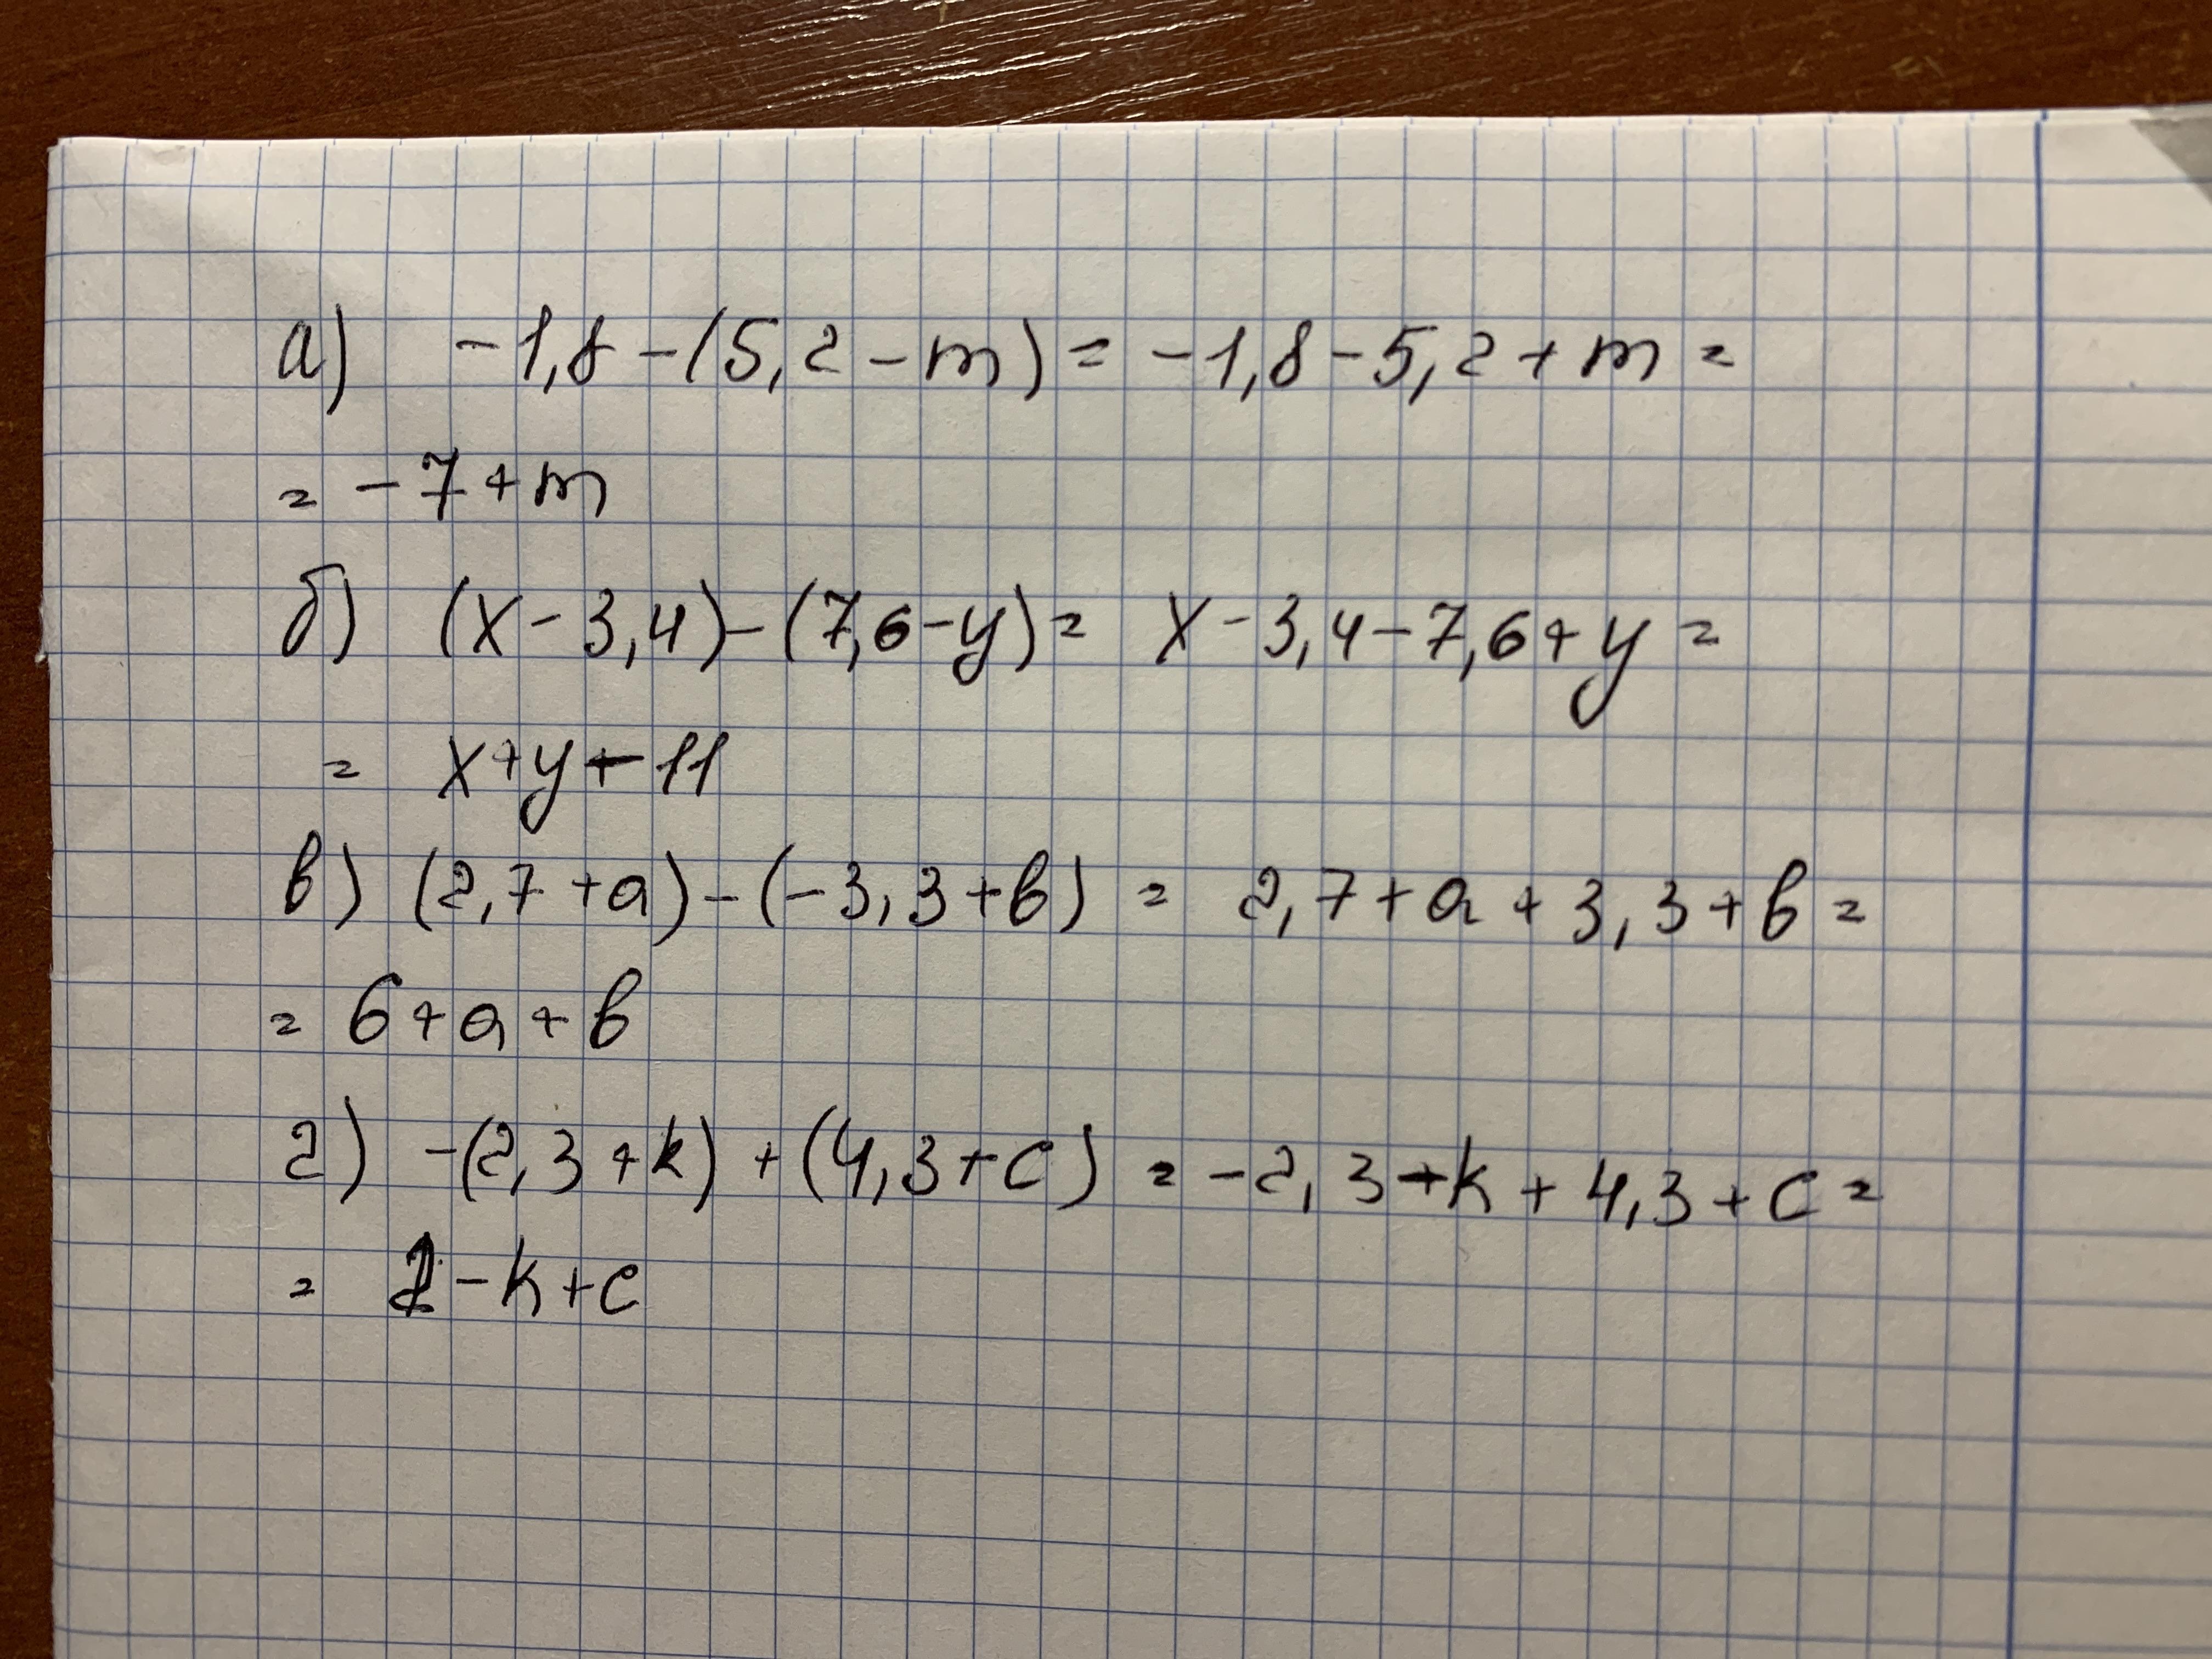 а) -1,8-(5,2-m)= -1,8-5,2+m=
= -7+m
б) (x-3,4)-(7,6-y)= x-3,4-7,6+y=
= x+y-11
в) (2,7+a)-(-3,3+b) = 2,7+a+3,3+b=
= 6+a+b
г) -(2,3+k)+(4,3+c) = -2,3-k+4,3+c=
= 2-k+c